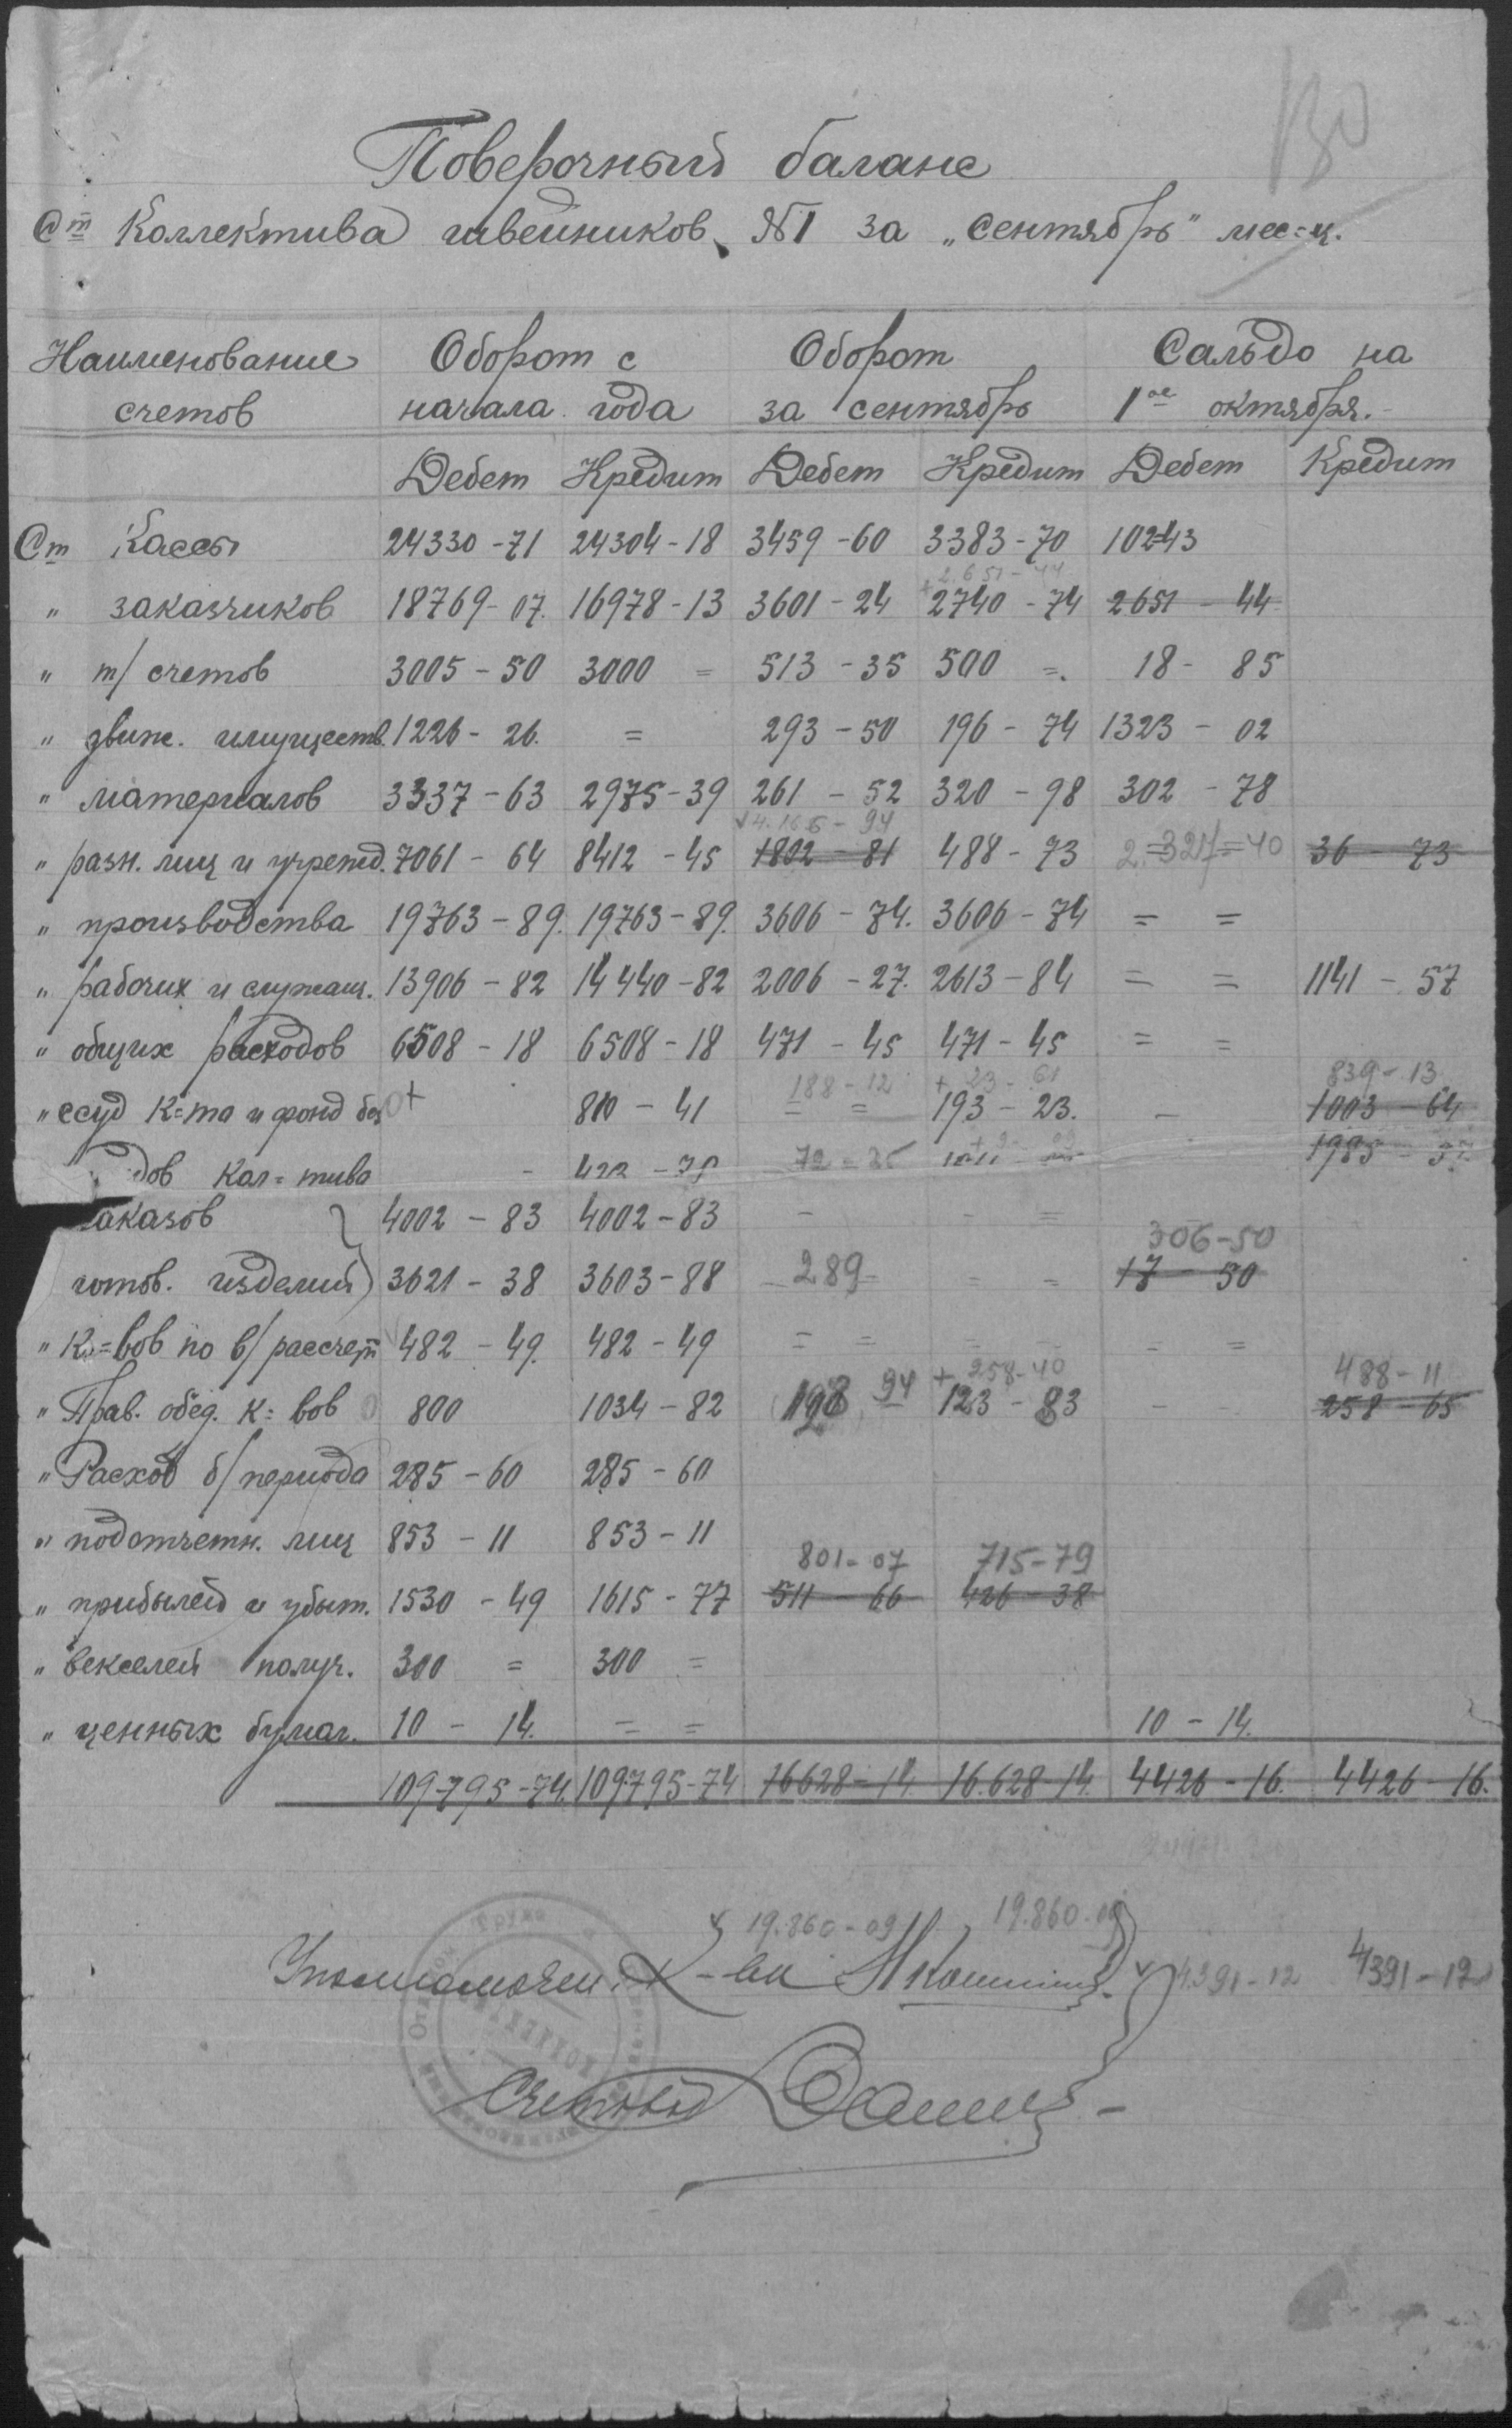 130
Поверочный баланс
Ст Коллектива швейников №1 за „сентябрь" мес=ц.
Наименование счетов Оборот с начала года Оборот за сентябрь Сальдо на 1ое октября.
Дебет Кредит Дебет Кредит Дебет Кредит
Ст Кассы 24330-71 24304-18 3459-60 3383-70 102=43
2.651-44
" заказчиков 18769-07. 16978-13 3601-24 2740-74 2651-44
" т/счетов 3005-50 3000 = 513-35 500 =. 18-85
" движ. имуществ. 1226-26. = 293-50 196-74 1323-02
" материалов 3337-63 2975-39 261-52 320-98 302-78
4.166-94
" разн. лиц и учрежд. 7061-64 8412-45 1802-81 488-73 2.327-40 36-73
" производства 19763-89. 19763-89. 3606-74. 3606-74 = =
" рабочих и служащ. 13906-82 14440-82 2006-27. 2613-84 = = 1141-57
" общих расходов 6508-18 6508-18 471-45 471-45 = =
188-12 + 23-61 839-13
" ссуд К=та и фонд без + 810-41 = = 193-23. - 1003-64
дов Кол=тива - 422-75 72-25 1985-37
аказов 4002-83 4002-83 - - =
306-50
готов. изделий 3621-38 3603-88 289- = = 17-50
" К=вов по в/рассчет 482-49. 482-49 = = - - - =
+ 258-40 488-11
" Прав. обед. К=вов 800 1034-82 198 94 123-83 - - 258-65
" Расход б/периода 285-60 285-60
" подотчетн. лиц 853-11 853-11
801-07 715-79
" прибылей и убыт. 1530-49 1615-77 511-66 426-38
" векселей получ. 300 = 300 =
" ценных бумаг. 10-14. = = 10-14.
109795-74. 109795-74 16628-14 16.628-14. 4426-16. 4426-16.
19.860-09 19.860-09
Уполномочен. К-ва 4391-12 4391-12
Счетовод